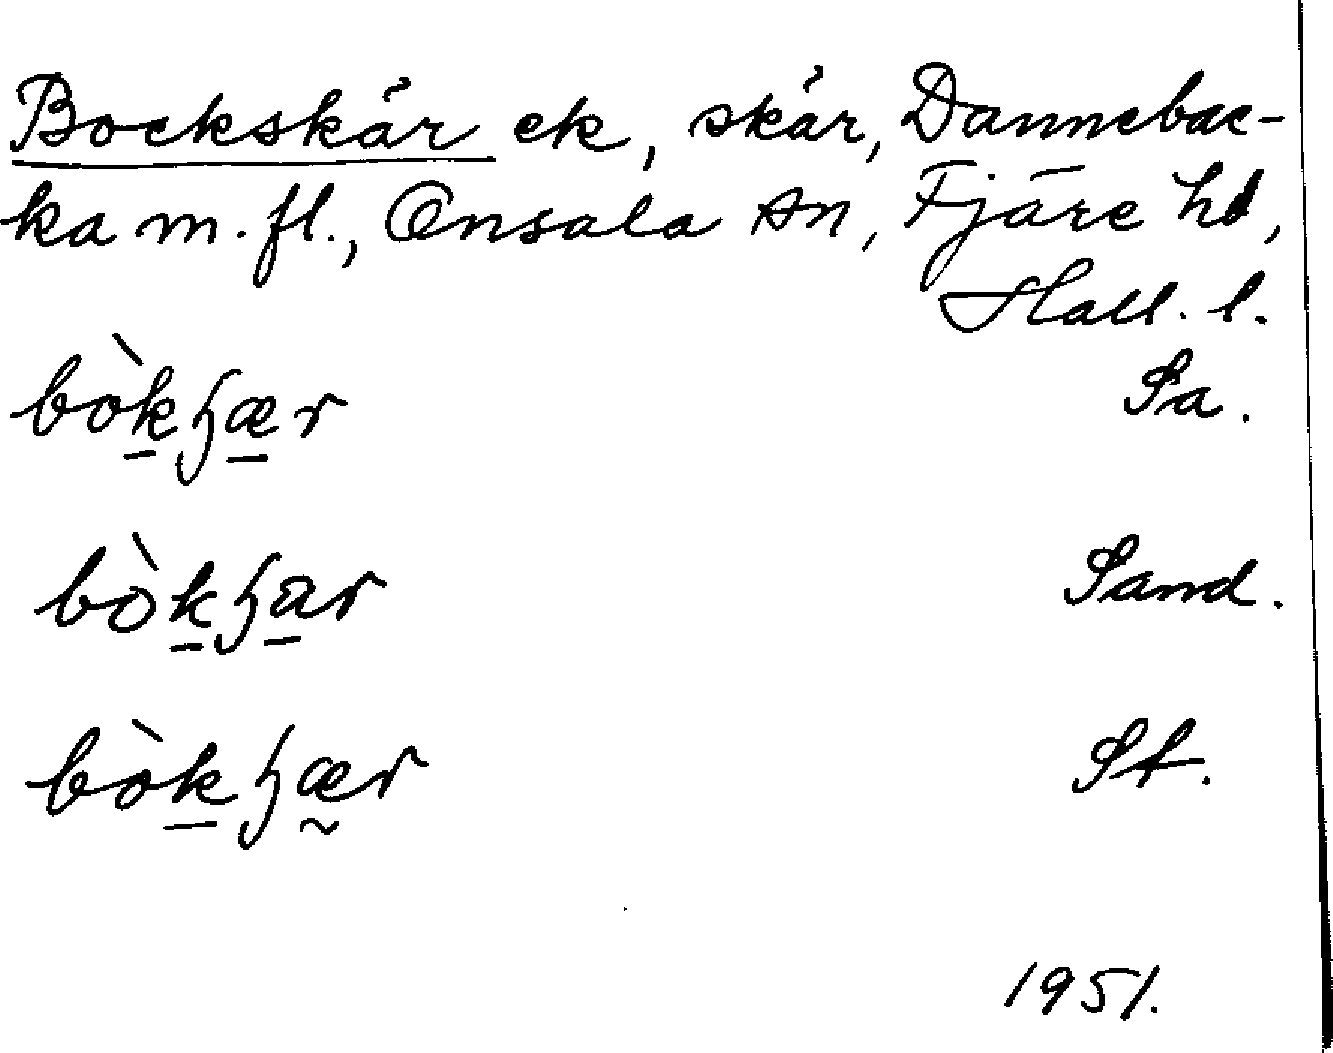 Bockskär ek, skär, Dannebac-
ka m.fl., Onsala sn, Fjäre hd,
Hall. l.
bòk̠ɧæ̠r Sa.
bòk̠ɧa̠r Sand.
bòk̠ɧæ̰r St.
1951.